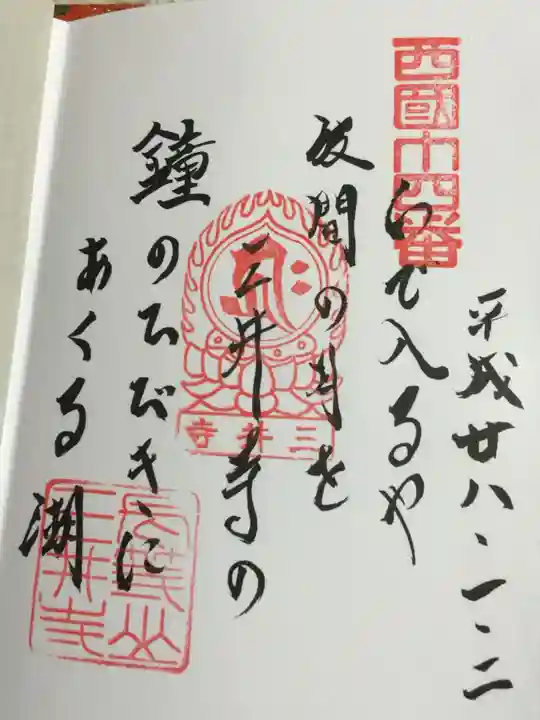 平成廿八・一・二
西國十四番
いで入るや
波間の月を
三井寺の
鐘のひびきに
あくる湖
三井寺
長等山
三井寺